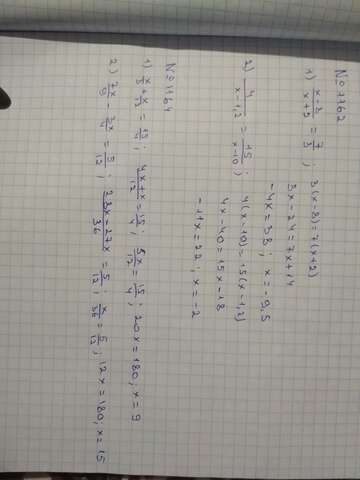 №1162
1) x-8/x+2 = 7/3 ; 3(x-8)=7(x+2)
3x-24=7x+14
-4x=38 ; x=-9,5
2) 4/x-1,2 = 15/x-10 ; 4(x-10)=15(x-1,2)
4x-40=15x-18
-11x=22 ; x=-2
№1164
1) x/3 + x/12 = 15/4 ; 4x+x/12 = 15/4 ; 5x/12 = 15/4 ; 20x=180 ; x=9
2) 7x/9 - 3x/4 = 5/12 ; 28x-27x/36 = 5/12 ; x/36 = 5/12 ; 12x=180 ; x=15